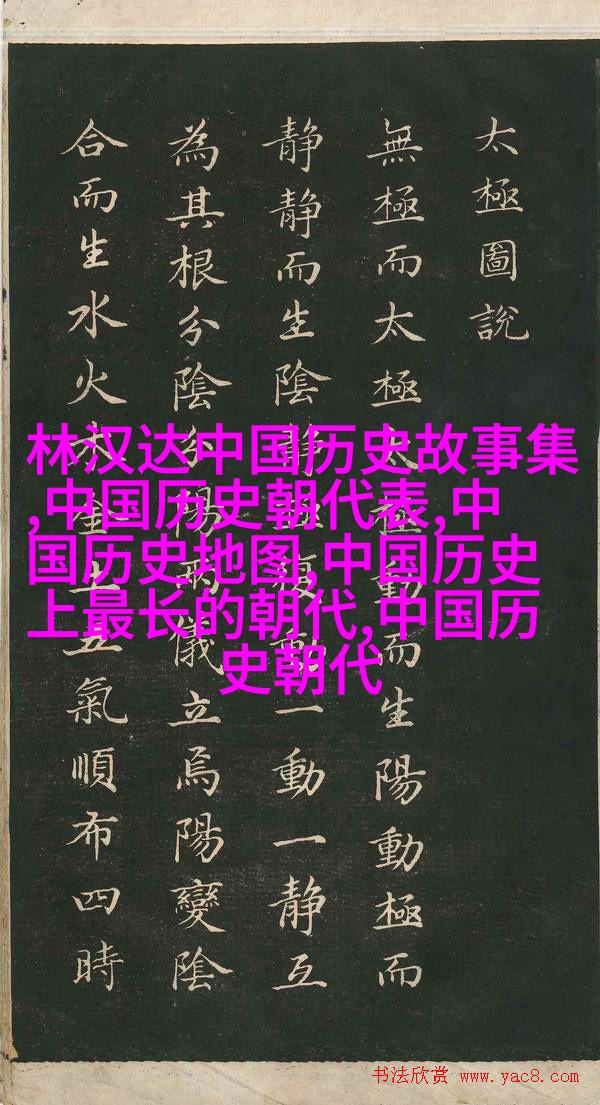 太極圖說
無極而太極太極動而生陽動極而
静静而生陰静極復動一動一静互
為其根分陰分陽兩儀立焉陽變陰
合而生水火木金土五氣順布四時
林汉达中国历史故事集
,中国历史朝代表,中
国历史地图,中国历史
上最长的朝代,中国历
史朝代
书法欣赏 www.yac8.com